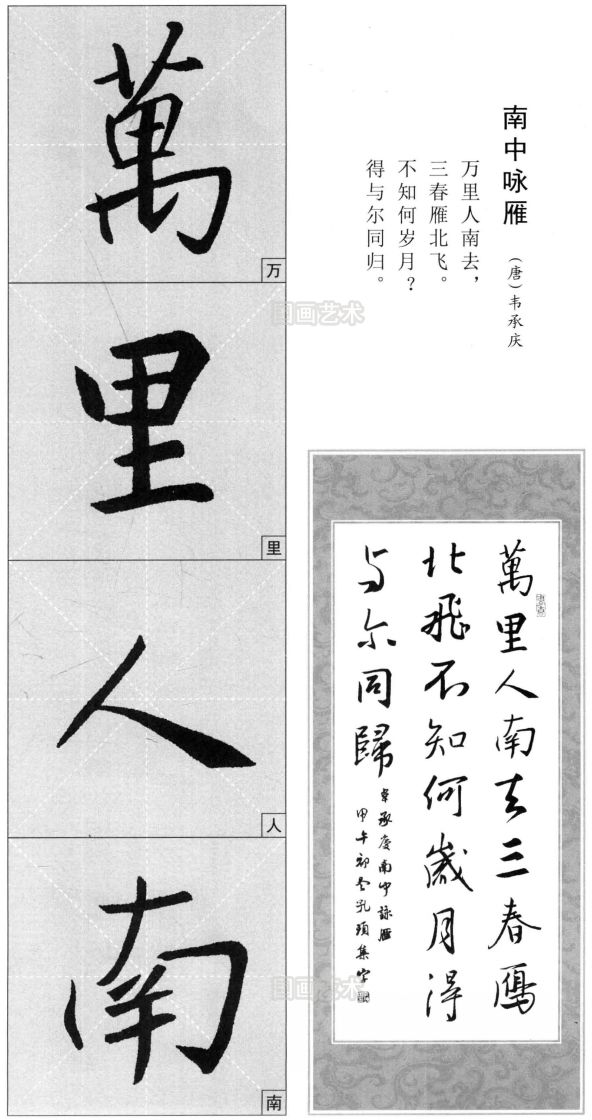 南中咏雁
（唐）韦承庆
万里人南去，
三春雁北飞。
不知何岁月？
得与尔同归。
萬
万
里
里
人
人
南
南
萬里人南去三春鴈
北飛不知何歲月得
与尔同歸
韋承慶南中詠雁
甲午初冬孔頊集字
国画艺术
国画艺术